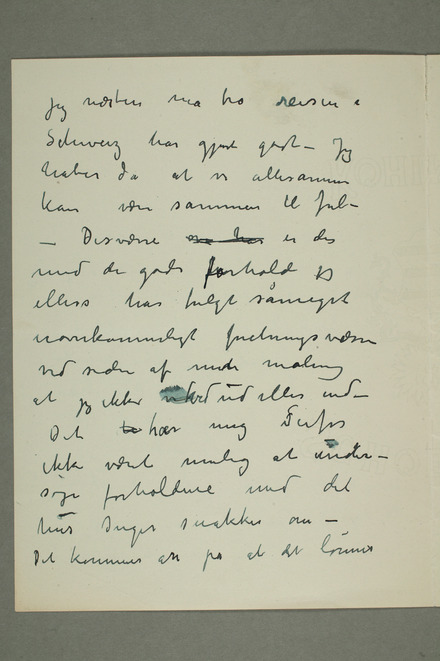 jeg næsten må tro reisen i
Schweiz har gjort godt – Jeg
håber da at vi allesammen
kan være sammen til Jul –
– Desværre er det
med de gode forhold jeg
ellers har fulgt såmeget
uvæsen
ved siden af min maling
at jeg ikke ud
Det har mig derfor
ikke været mulig at under-
søge forholdene med det
hus Inger snakker om –
Det kommer an på at det lønner